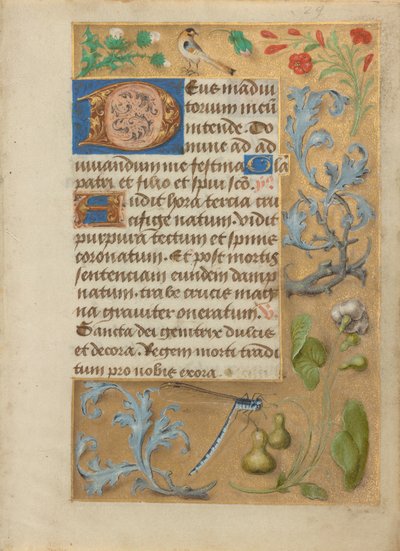 29
Deus in adiu
torium meū
intende. Do
mine ad ad
iuuandum me festina Gla
patri et filio et spui scō.
Audit hora tercia cru
cifige natum. vidit
purpura tectum et spineis
coronatum. Et post mortis
sentenciam eundem damp
natum. trabe crucis mag
na grauiter oneratum. V.
Sancta dei genitrix dulcis
et decora. Regem morti tradi
tum pro nobis exora.